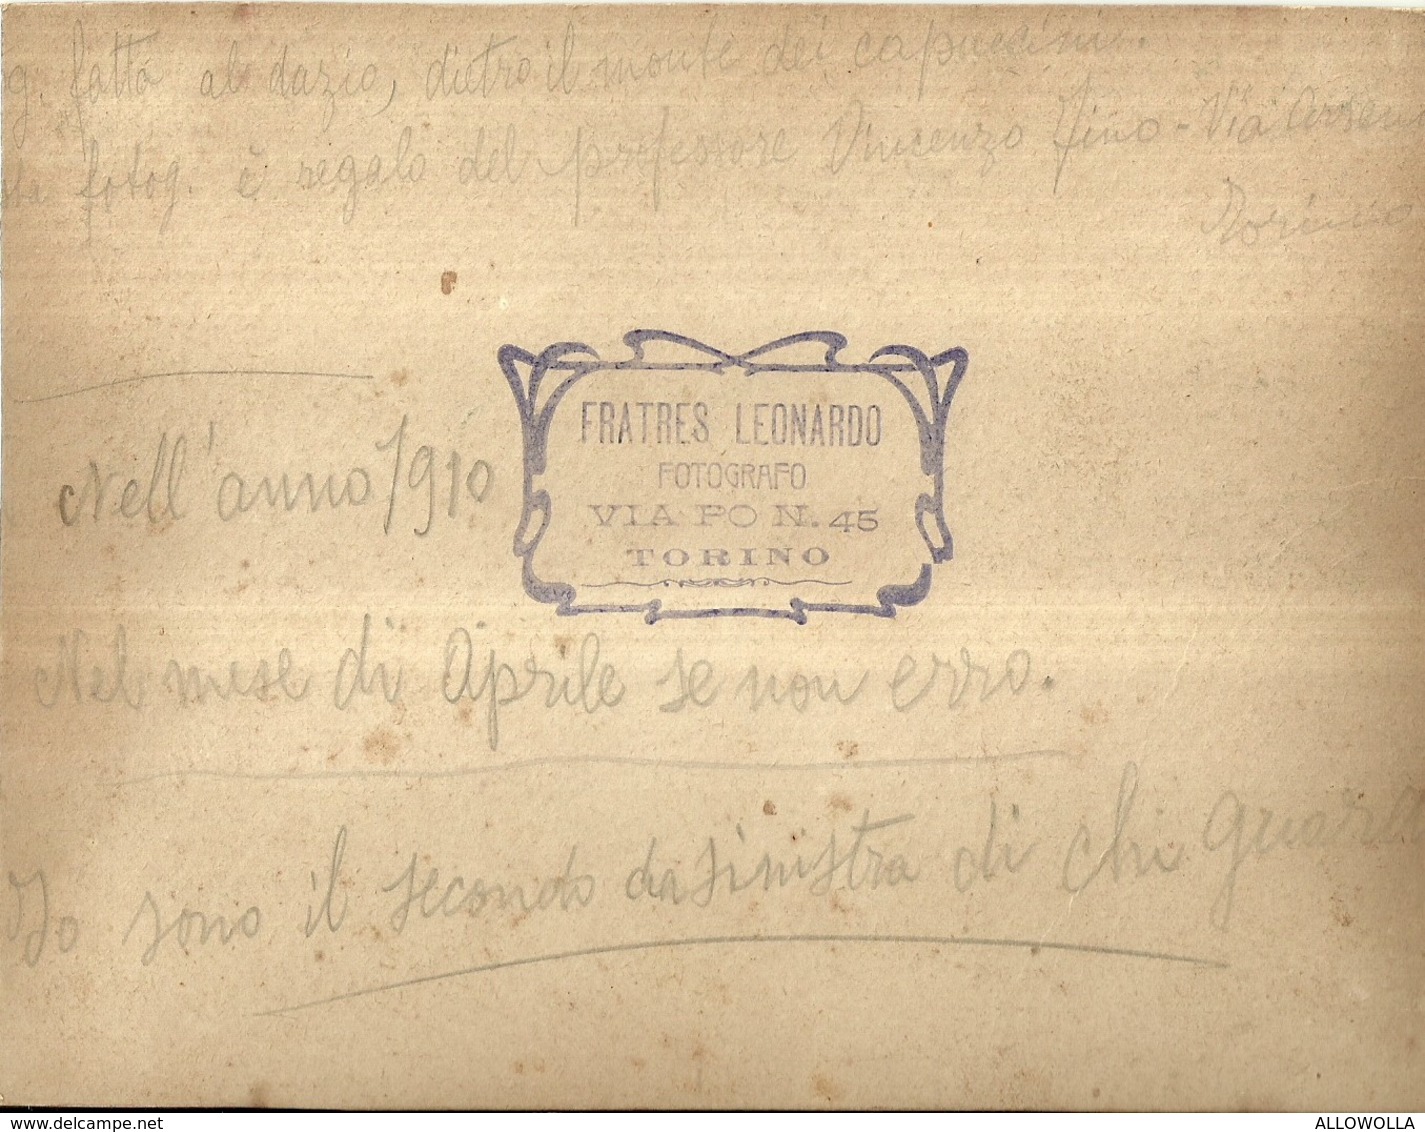 g. fatta al dazio, dietro il monte dei capuccini.
sta fotog. è regalo del professore Vincenzo Fino - Via Arsen
Torino
FRATRES LEONARDO
FOTOGRAFO
VIA PO N. 45
TORINO
Nell'anno 1910
Nel mese di Aprile se non erro.
Io sono il secondo da sinistra di chi guarda
ALLOWOLLA